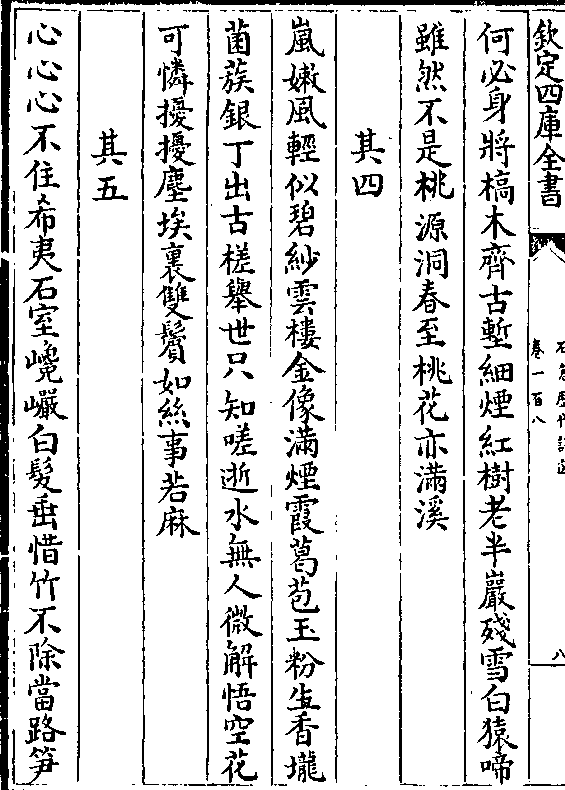 欽定四庫全書
石倉歷代詩選
卷一百八
八
何必身將槁木齊古塹細煙紅樹老半巖殘雪白猿啼
雖然不是桃源洞春至桃花亦滿溪
其四
嵐嫩風輕似碧紗雲樓金像滿煙霞葛苞玉粉生香壠
菌蔟銀丁出古槎舉世只知嗟逝水無人微解悟空花
可憐擾擾塵埃裏雙鬢如絲事若麻
其五
心心心不住希夷石室巉巗白髮垂惜竹不除當路笋